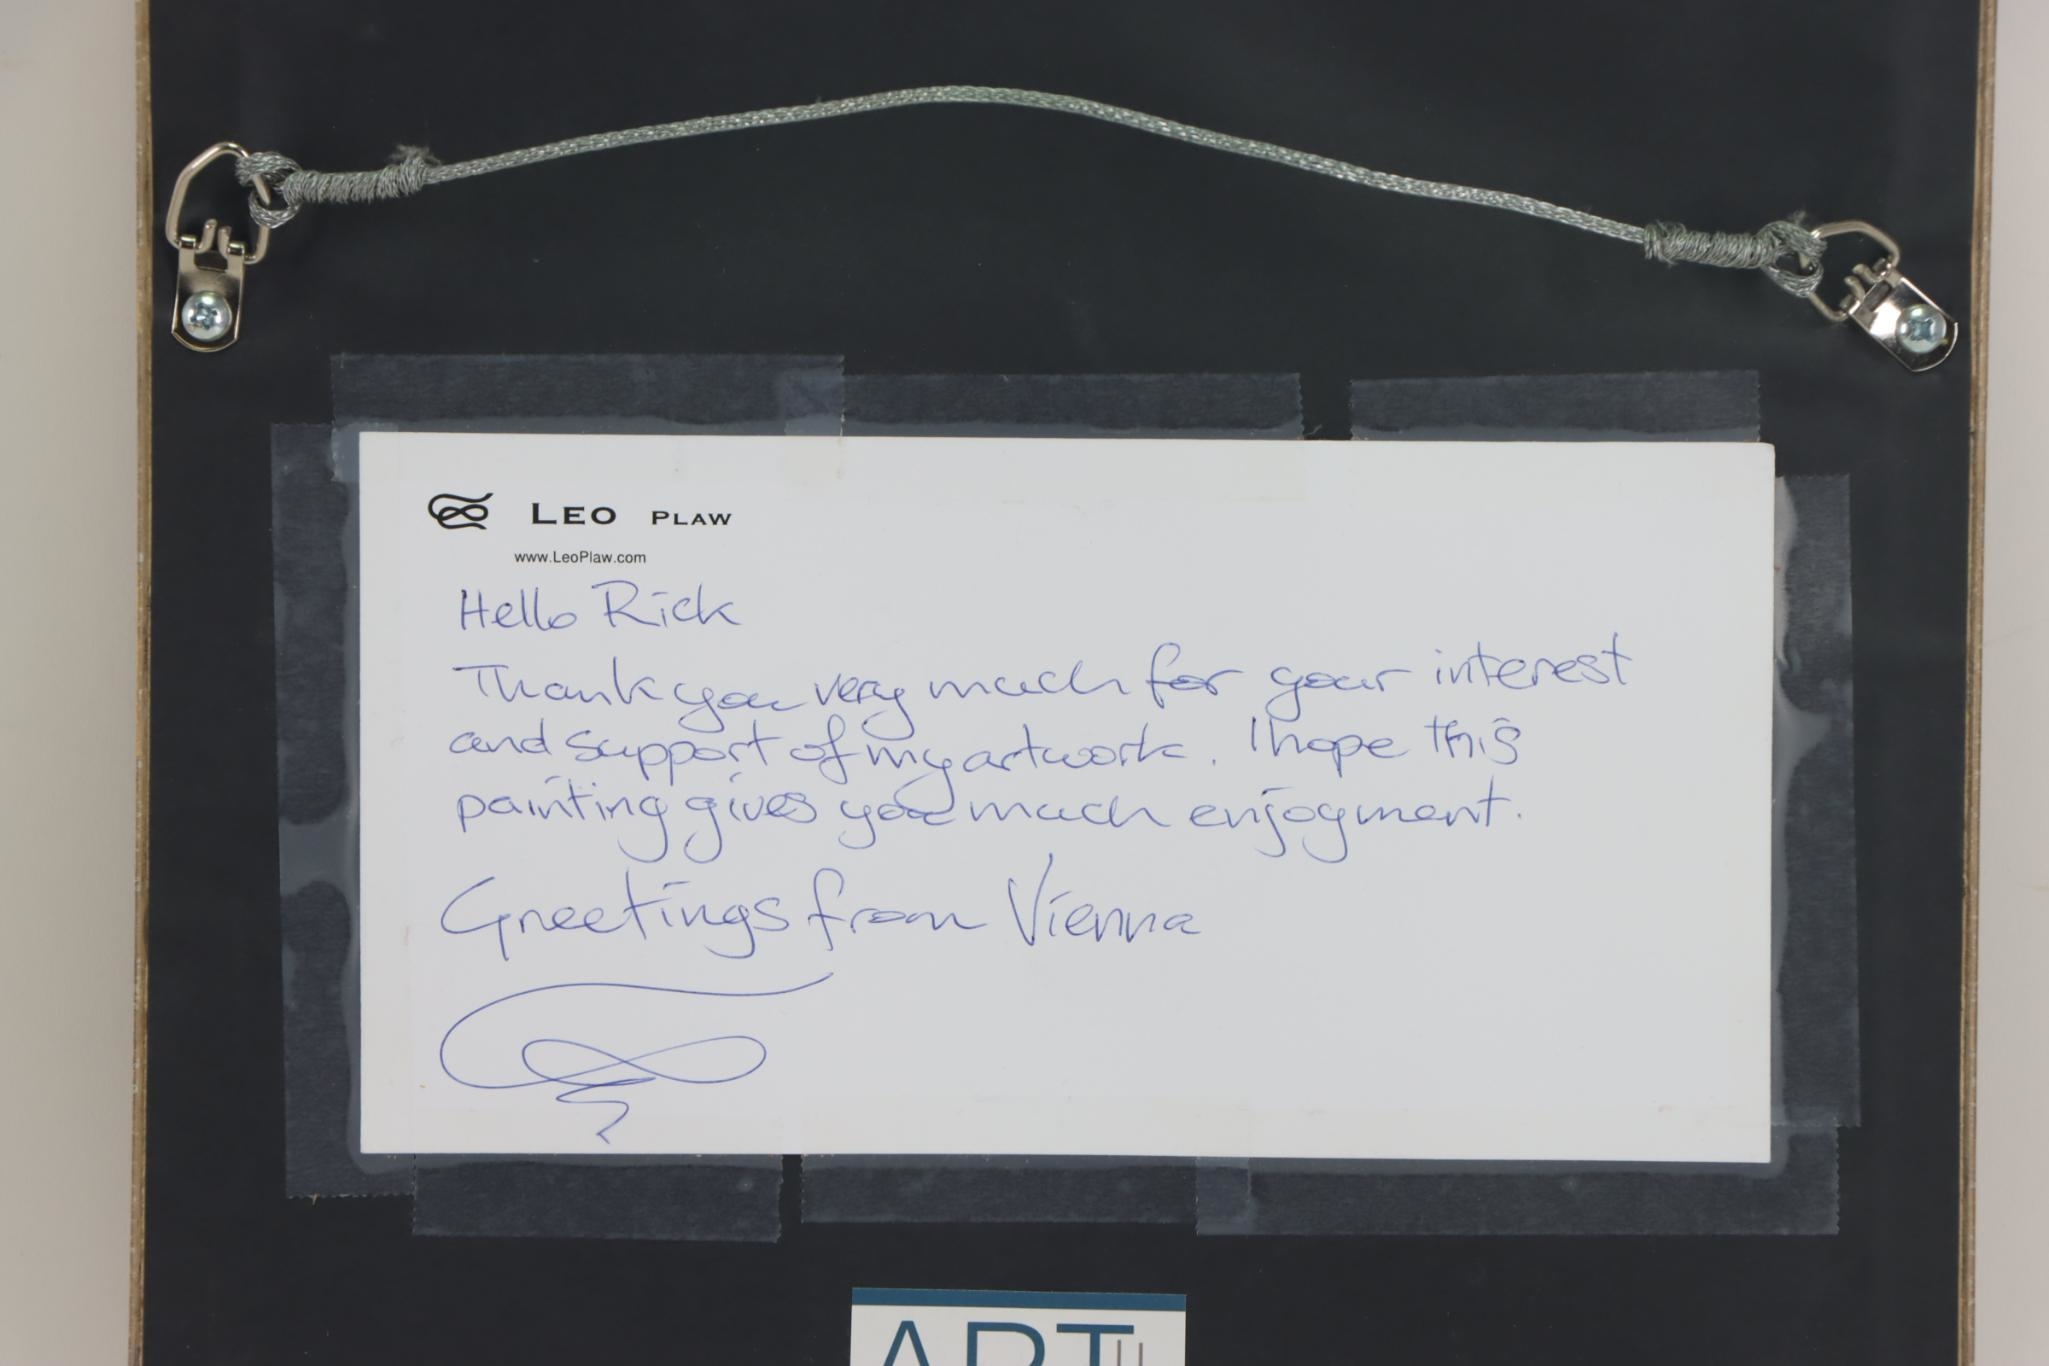 Leo Plaw
www.LeoPlaw.com
Hello Rick
Thank you very much for your interest
and support of my artwork. I hope this
painting gives you much enjoyment.
Greetings from Vienna
ART